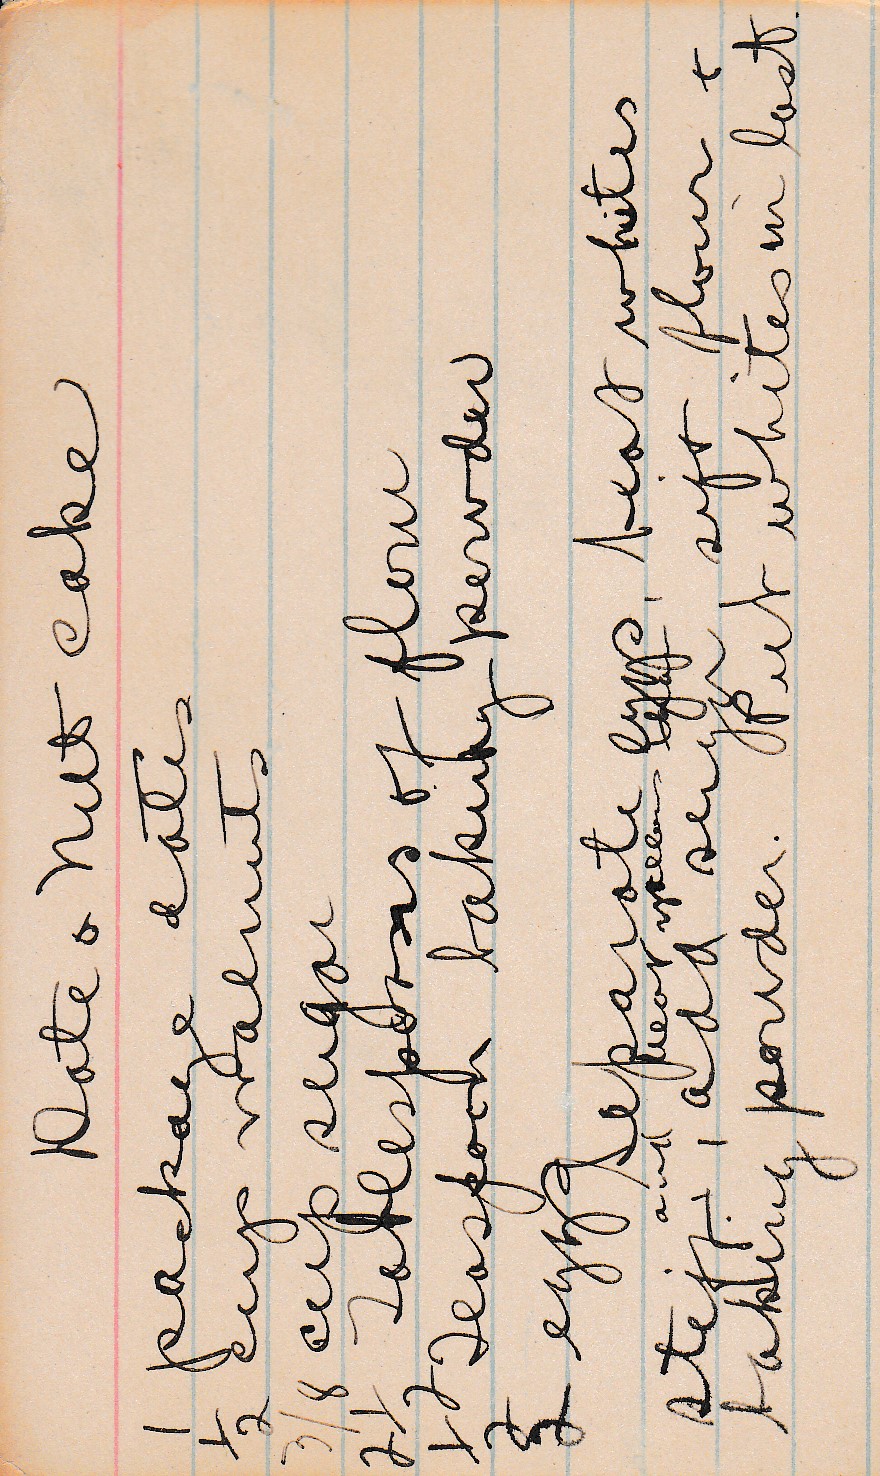 Date & Nut cake
1 package dates
1/2 cup walnuts
3/8 cup sugar
2 1/2 Tablespoons of flour
1/2 Teaspoon baking powder
2 eggs
Separate eggs, beat whites
and beat yellows
stiff, add sugar, sift flour &
baking powder. Put whites in last.